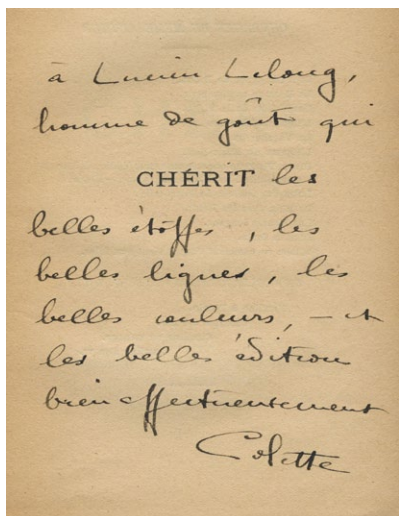 à Lucien Lelong,
homme de goût qui
CHÉRIT les
belles étoffes, les
belles lignes, les
belles couleurs, – et
les belles édition
bien affectueusement
Colette